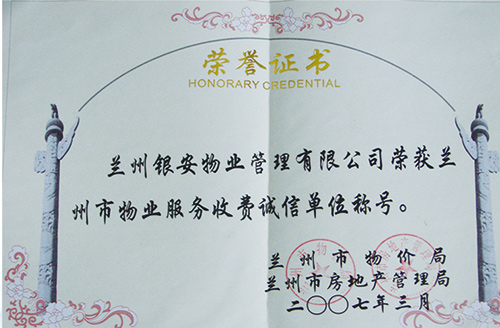 荣誉证书
HONORARY CREDENTIAL
兰州银安物业管理有限公司荣获兰
州市物业服务收费诚信单位称号。
兰州市物价局
兰州市房地产管理局
二〇〇七年三月